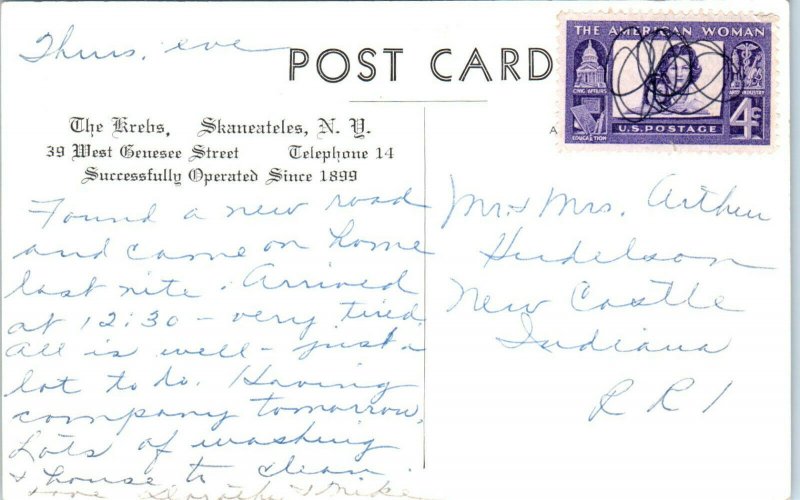 Thurs. eve
POST CARD
THE AMERICAN WOMAN
CIVIC AFFAIRS
EDUCATION
U.S. POSTAGE
4¢
The Krebs, Skaneateles, N. Y.
39 West Genesee Street Telephone 14
Successfully Operated Since 1899
Found a new road
and came on home
last nite. Arrived
at 12:30 - very tired.
All is well - just a
lot to do. Having
company tomorrow.
Lots of washing
& house to clean.
Love Dorothy & Mike
Mr. & Mrs. Arthur
Hudelson
New Castle
Indiana
R R 1